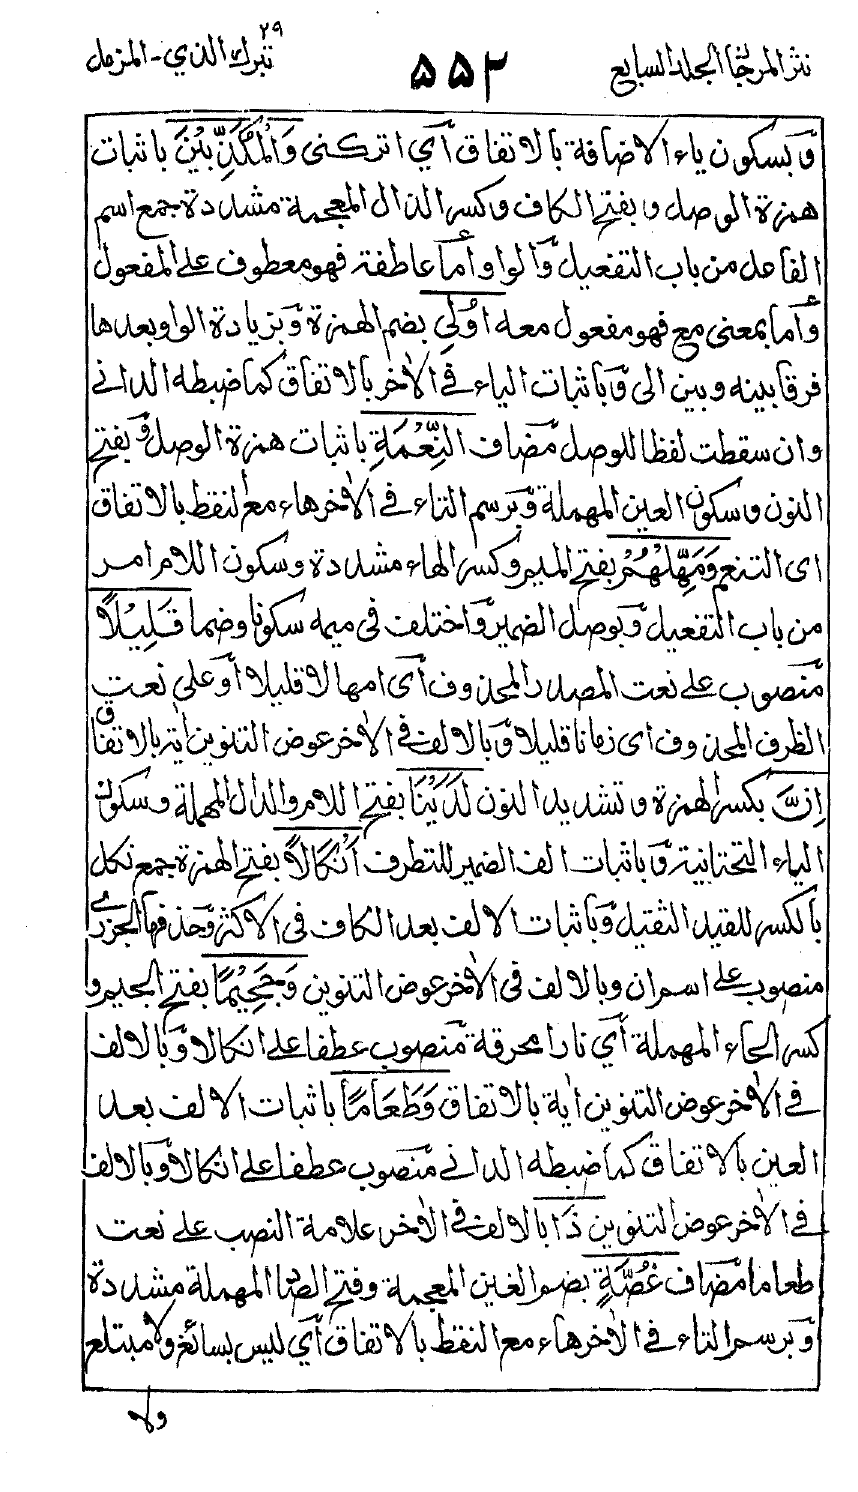 نثر المرجان الجلد السابع ۵۵۲ تبرك الذي ۲۹ - المزمل
وبسكون ياء الاضافة بالاتفاق أي اتركنى وَالْمُكَذِّبِيْنَ باثبات
همزة الوصل وبفتح الكاف وكسر الذال المعجمة مشددة جمع اسم
الفاعل من باب التفعيل والواو أما عاطفة فهو معطوف على المفعول
وأما بمعنى مع فهو مفعول معه اُولِي بضم الهمزة وبزيادة الواو بعدها
فرقا بينه وبين الى وباثبات الياء في الاٰخر بالاتفاق كما ضبطه الداني
وان سقطت لفظا للوصل مضاف النِّعْمَةِ باثبات همزة الوصل وبفتح
النون وسكون العين المهملة وبرسم التاء في الاٰخر هاء مع النقط بالاتفاق
اى التنعم وَمَهِّلْهُمْ بفتح الميم وكسر الهاء مشددة وسكون اللام امر
من باب التفعيل وبوصل الضمير واختلف فى ميمه سكونا وضما قَلِيْلًا
منصوب على نعت المصدر المحذوف أى امهالا قليلا أو على نعت
الظرف المحذوف اى زمانا قليلا وبالالف في الاٰخر عوض التنوين اٰية بالاتفاق
اِنَّ بكسر الهمزة وتشديد النون لَدَيْنَا بفتح اللام والدال المهملة وسكون
الياء التحتانية وباثبات الف الضمير للتطرف أَنْكَالًا بفتح الهمزة جمع نكل
بالكسر للقيد الثقيل وباثبات الالف بعد الكاف في الاكثر وحذفها الجزري
منصوب على اسم ان وبالالف فى الاٰخر عوض التنوين وَجَحِيْمًا بفتح الجيم و
كسر الحاء المهملة أي نارا محرقة منصوب عطفا على انكالا وبالالف
في الاٰخر عوض التنوين اٰية بالاتفاق وَطَعَامًا باثبات الالف بعد
العين بالاتفاق كما ضبطه الداني منصوب عطفا على انكالا وبالالف
في الاٰخر عوض التنوين ذَا بالالف في الاٰخر علامة النصب على نعت
طعاما مضاف غُصَّةٍ بضم الغين المعجمة وفتح الصاد المهملة مشددة
وبرسم التاء في الاٰخر هاء مع النقط بالاتفاق أي ليس بسائغ ولا مبتلع
ولا